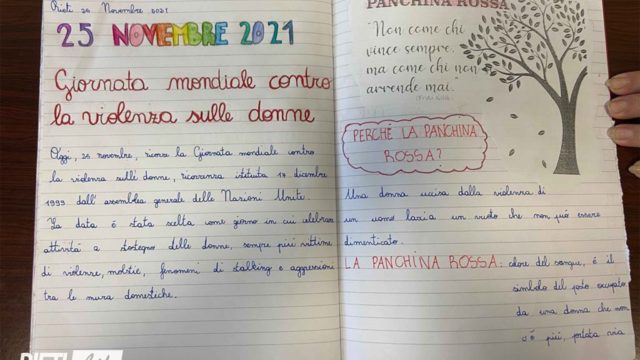 Rieti 26 Novembre 2021
25 NOVEMBRE 2021
Giornata mondiale contro
la violenza sulle donne
Oggi, 25 novembre, ricorre la Giornata mondiale contro
la violenza sulle donne, ricorrenza istituita 17 dicembre
1999 dall'assemblea generale delle Nazioni Unite.
La data é stata scelta come giorno in cui celebrare
attività a sostegno delle donne, sempre più vittime
di violenze, molstie, fenomeni di stalking e aggressione
tra le mura domestiche.
PANCHINA ROSSA
"Non come chi
vince sempre,
ma come chi non
arrende mai."
PERCHÉ LA PANCHINA
ROSSA?
Una donna uccisa dalla violenza di
un uomo lascia un vuoto che non può essere
dimenticato.
LA PANCHINA ROSSA: colore del sangue, é il
simbolo del posto occupato
da una donna che non
c'é più, portata via
RIETI